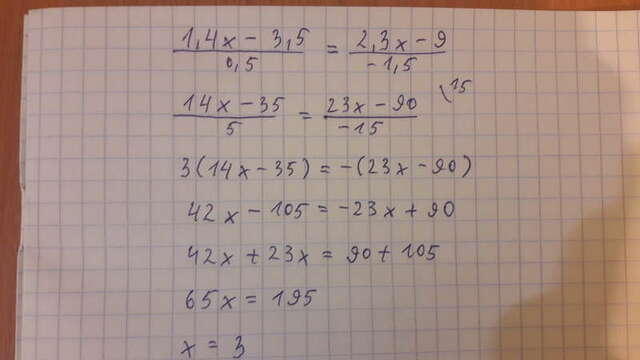 1,4x - 3,5 / 0,5 = 2,3x - 9 / -1,5
14x - 35 / 5 = 23x - 90 / -15 \15
3(14x - 35) = -(23x - 90)
42x - 105 = -23x + 90
42x + 23x = 90 + 105
65x = 195
x = 3